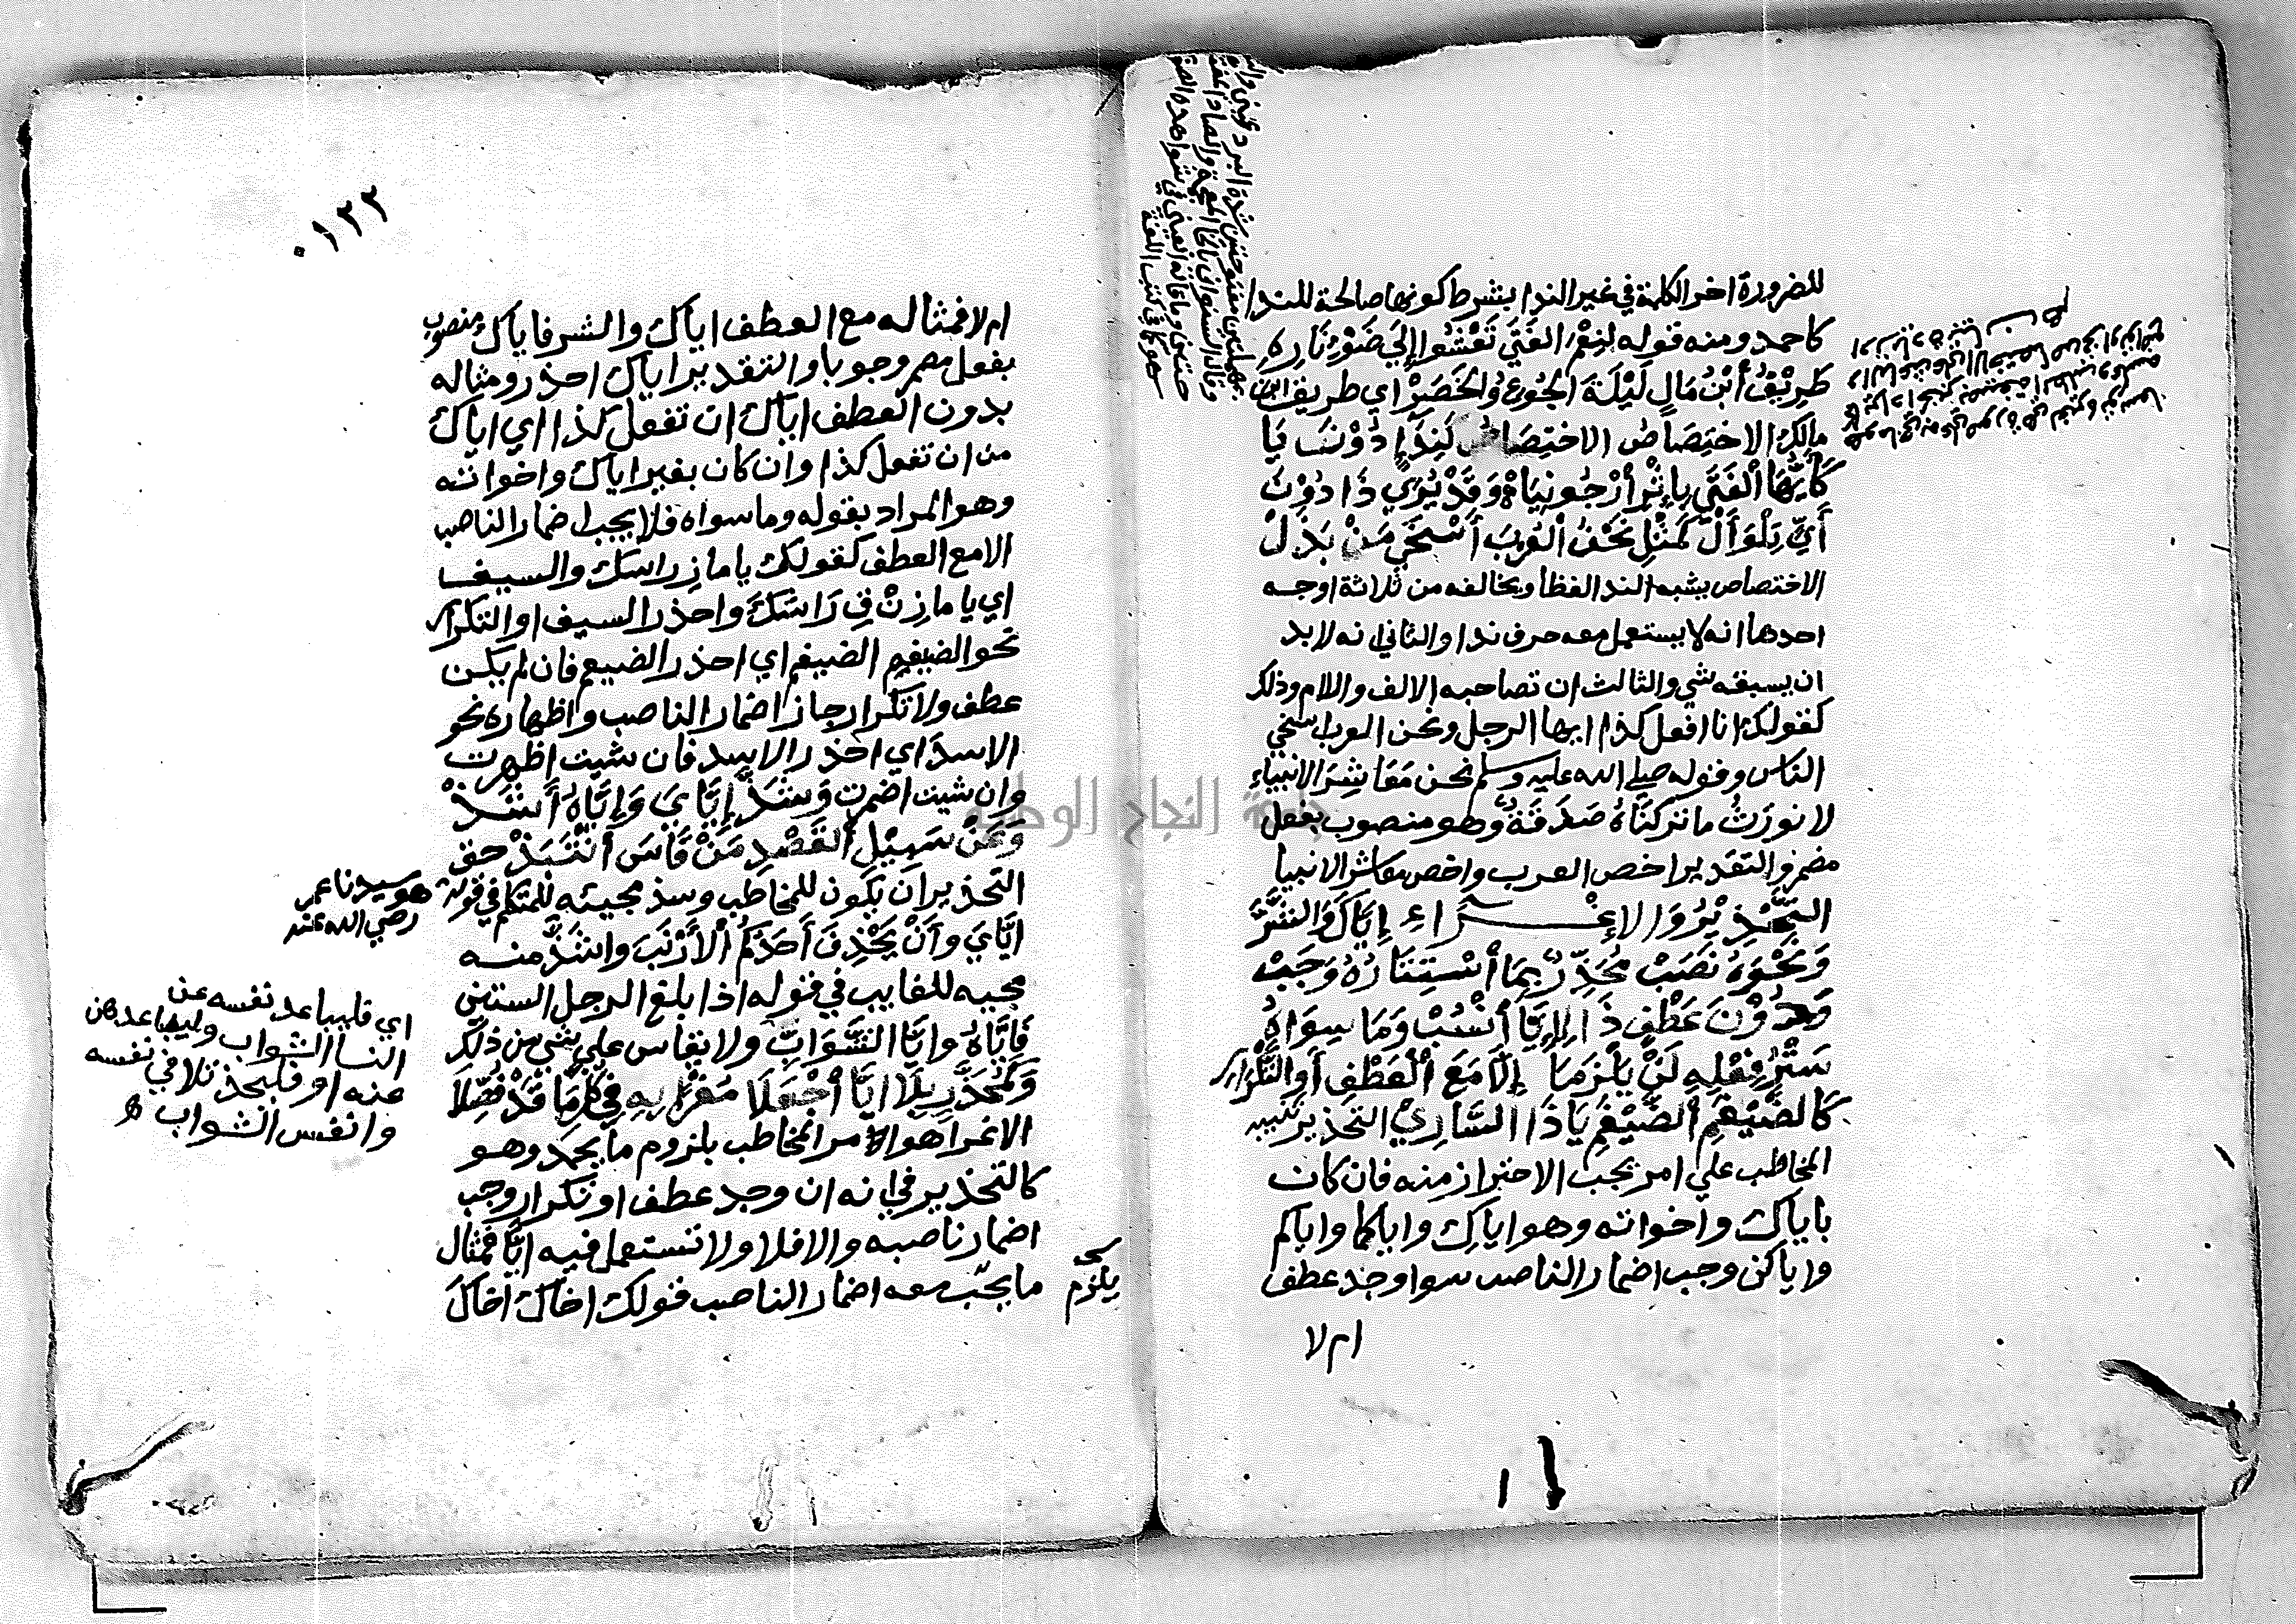 للضرورة اخر الكلمة في غير الندا بشرط كونها صالحة للندا
كاحمد ومنه قوله لنِعْمَ الفَتَي تَعْشُوا إِلَي ضَوْءِ نَارِهِ
طَرِيْفُ أبْنُ مَالٍ لَيْلَةَ الجُوْعِ وُالخَصَرْ اي طريف ابن
مالِكٍ الاختِصَاصُ الاختِصَاصُ كَنِدَآءٍ دُوْنَ يَا
كَأيُّهَا ألْفَتَي بِإِثْرِ أُرْجُونِيَاهْ وَقَدْ يُرَي ذَا دُوْنَ
أيٍّ تِلْوَ ألْ كَمِثْلِ نَحْنُ ألْعُرْبَ أسْخَي مَنْ بَذَلْ
الاختصاص يشبه الندا لفظا ويخالفه من ثلاثة اوجه
احدها انه لا يستعمل معه حرف ندا والثاني انه لا بد
ان يسبقه شي والثالث ان تصاحبه الالف واللام وذلك
كقولك انا افعل كذا ايها الرجل ونحن العرب اسخي
الناس وقوله صلي الله عليه وسلم نحن مَعَاشِرَ الانبياء
لا نورَثُ ما تركنَاهُ صَدَقَةٌ وهو منصوب بفعل
مضمر والتقدير اخص العرب واخص معاشر الانبيا
التَّحْذِيْرُ وَالإِغْرَاءِ إِيَّاكَ وَالشَّرَّ
وَنَحْوَهُ نَصَبْ مُحَذِّرٌ بِمَا أسْتِتَارُهُ وَجَبْ
وَدُوْنَ عَطْفٍ ذَا لِإِيَّا أنْسُبْ وَمَا سِوَاهُ
سَتْرُ فِعْلِهِ لَنْ يَلْزَمَا إِلَّا مَعَ ألْعَطْفِ أوِ التَّكْرَارِ
كَالضَّيْغَمِ ألضَّيْغَمِ يَاذَا السَّارِيْ التحذير تنبيه
المخاطب علي امر يجب الاحتراز منه فان كان
باياك واخواته وهو اياكِ واياكما واياكم
واياكن وجب اضمار الناصب سوا وجد عطف
ام لا
جامعة النجاح الوطنية
٠١٢٢
ام لا فمثاله مع العطف اياك والشر فاياك منصوب
بفعل مضمر وجوبا والتقدير اياك احذر ومثاله
بدون العطف اياك ان تفعل كذا اي اياك
من ان تفعل كذا وان كان بغير اياك واخواته
وهو المراد بقوله وما سواه فلا يجب اضمار الناصب
الا مع العطف كقولك يا مازِ راسك والسيف
اي يا مازِنْ قِ رَاسَكَ واحذر السيف او التكرار
نحو الضيغم الضيغم اي احذر الضيغم فان لم يكن
عطف ولا تكرار جاز اضمار الناصب واظهاره نحو
الاسدَ اي احذر الاسد فان شيت اظهرت
وان شيت اضمرت وَشَذَّ إِيَّايَ وَإِيَّاهُ أَشَذّْ
وَعَنْ سَبِيْلِ ألقَصْدِ مَنْ قَاسَ أنْتَبَذْ حق
التحذير ان يكون للمخاطب وشذ مجيئه للمتكلم في قوله
ايَّايَ وَأَنْ يَحْذِفَ أَحَدُكُمُ ألأَرْنَبَ واشذُّ منه
مجيه للغايب في قوله اذا بلغ الرجل الستين
فَإيَّاهُ وايَّا الشَّوَابِّ ولا يقاس علي شي من ذلك
وَكَمُحَذَّرٍ بِلَا ايَّا أجْعَلَا مَغْرًا بِهِ فِي كُلِّ مَا قَدْ فُصِّلَا
الاغرا هو امر المخاطب بلزوم ما يحمد وهو
كالتحذير في انه ان وجد عطف او تكرار وجب
اضمار ناصبه والا فلا ولا تستعمل فيه ايَّا فمثال
ما يجب معه اضمار الناصب قولك اخاك اخاكَ
يلزم
هو سيدنا عمر
رضي الله عنه
اي فليباعد نفسه عن
النسا الشواب وليباعدهن
عنه او فليحذر تلاقي نفسه
وانفس الشواب